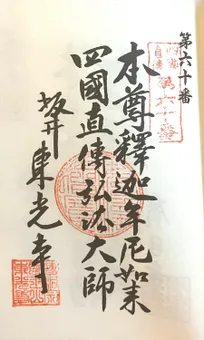 第六十番
第六十番
本尊釋迦牟尼如来
四國直傳弘法大師
坂井東光寺